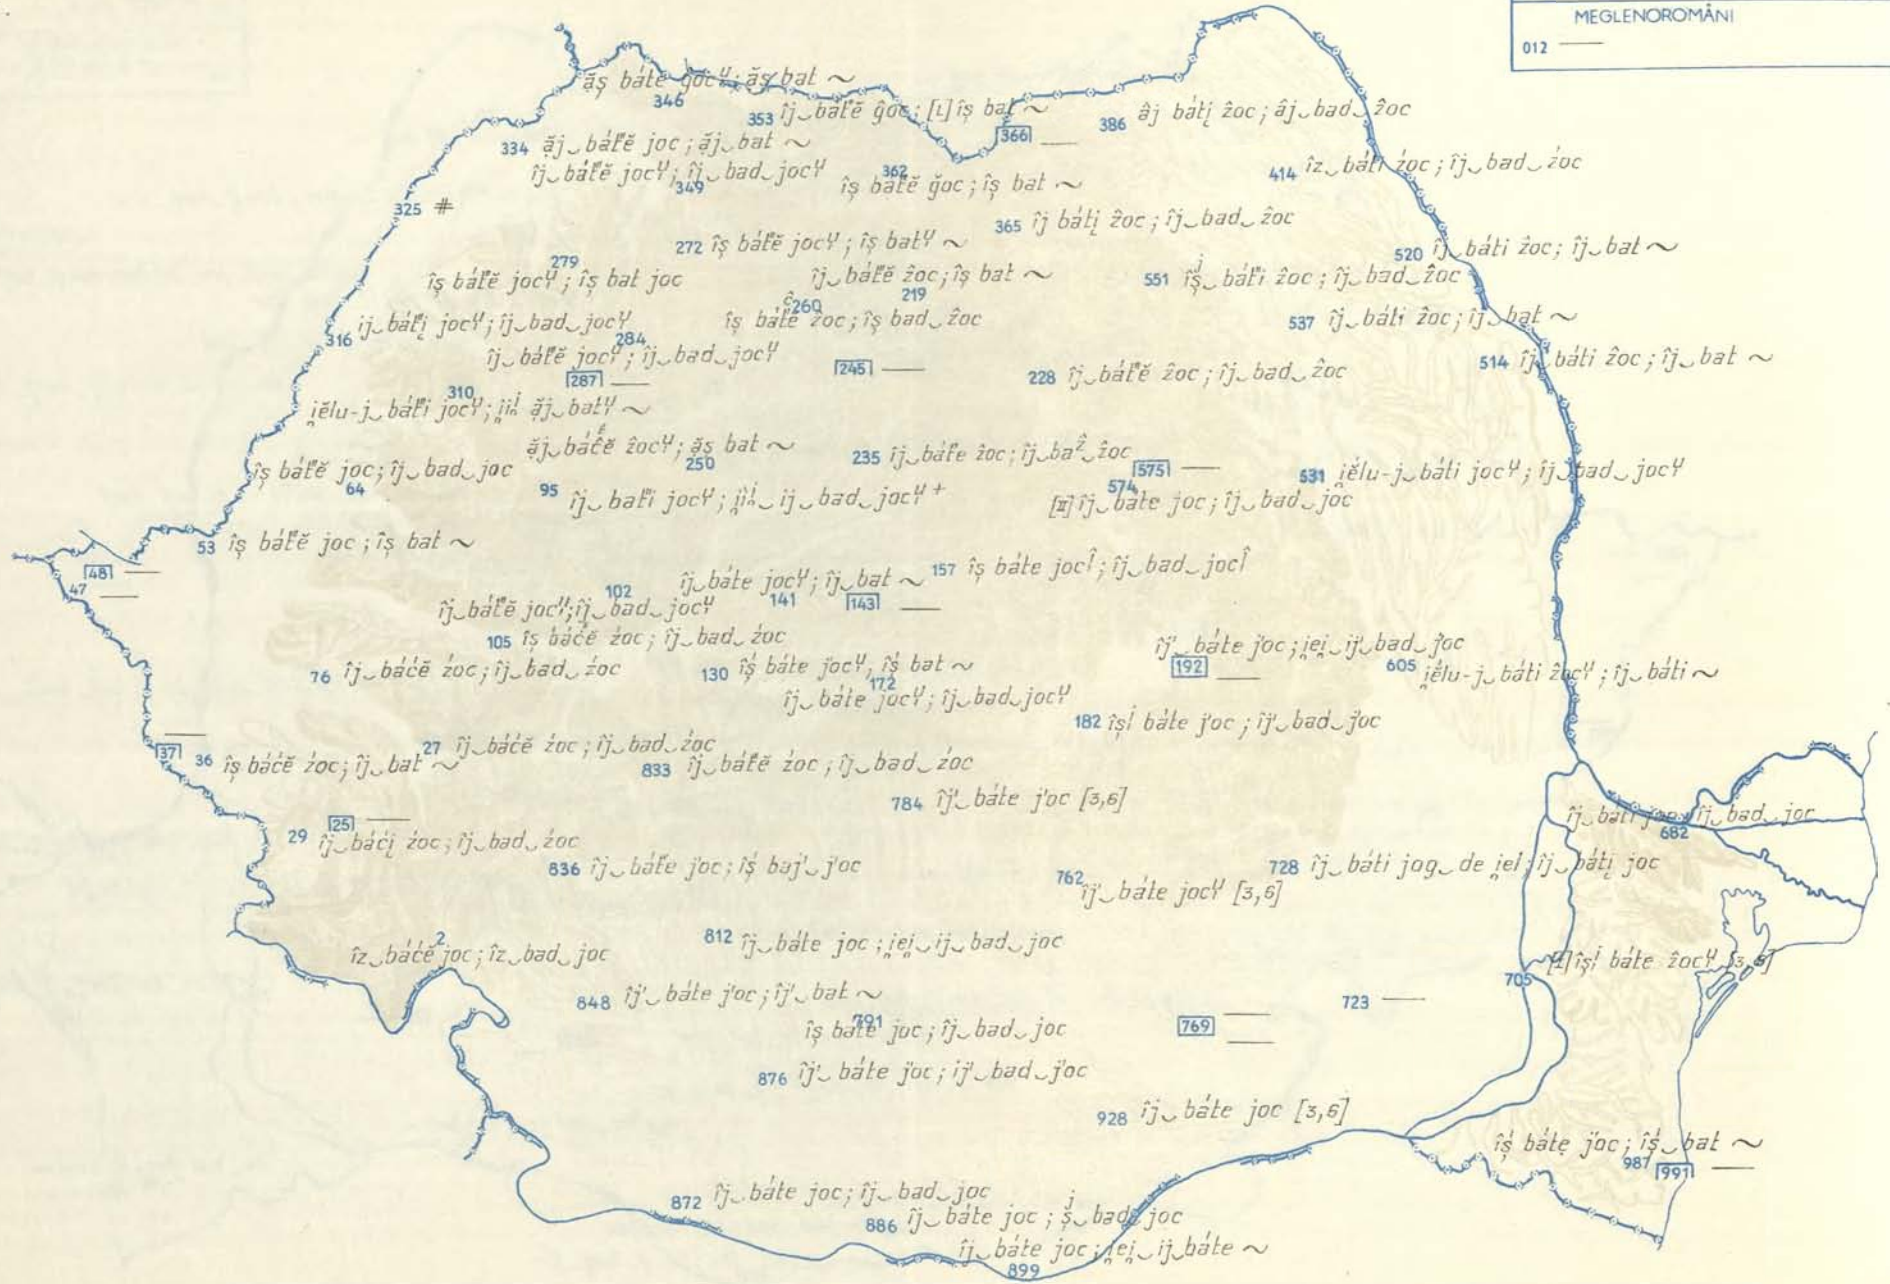 MEGLENOROMÂNI
012 —
ă̦ș báte ĝocᵘ; ă̦ș bat ~
346
353 îj‿bát́ĕ ĝoc; [ι] îș bat ~
366 —
386 âj báti̦ ẑoc; âj‿bad‿ẑoc
334 ă̦j‿bát́ĕ joc; ă̦j‿bat ~
îj‿bát́ĕ jocᵘ; îj‿bad‿jocᵘ
349
362
îș bát́ĕ ğoc; îș bat ~
414 îz‿báti źoc; îj‿bad‿źoc
325 #
365 îj báti̦ ẑoc; îj‿bad‿ẑoc
272 îș bát́ĕ jocᵘ; îș batᵘ ~
520 îj‿báti ẑoc; îj‿bat ~
279
îș bát́ĕ jocᵘ; îș bat joc
îj‿bát́ĕ ẑoc; îș bat ~
219
551 îșʲ‿bát́i ẑoc; îj‿bad‿ẑoc
260
îș bát́ĕ ẑoc; îș bad‿ẑoc
316 ij‿bát́i̦ jocᵘ; ij‿bad‿jocᵘ
537 îj‿báti ẑoc; îj‿bat ~
284
îj‿bát́ĕ jocᵘ; îj‿bad‿jocᵘ
514 îj‿báti ẑoc; îj‿bat ~
287 —
245 —
228 îj‿bát́ĕ ẑoc; îj‿bad‿ẑoc
310
i̯ĕlu-j‿bát́i jocᵘ; ă̦j‿batᵘ ~
ă̦j‿báĉĕ ẑocᵘ; ă̦ș bat ~
250
235 îj‿bát́e ẑoc; îj‿baᶻ̂‿ẑoc
575 —
îș bát́ĕ joc; îj‿bad‿joc
64
531 i̯ĕ́lu-j‿báti jocᵘ; îj‿bad‿jocᵘ
95 îj‿bat́i jocᵘ; ij‿bad‿jocᵘ +
574
[II] îj‿báte joc; îj‿bad‿joc
53 îș bát́ĕ joc; îș bat ~
48 —
47 —
îj‿báte jocᵘ; îj‿bat ~
141
157 îș báte jocî; îj‿bad‿jocî
102
îj‿bát́ĕ jocᵘ; îj‿bad‿jocᵘ
143 —
105 îș báćĕ źoc; îj‿bad‿źoc
îj'‿báte j'oc; i̯ei̯‿ij'‿bad‿j'oc
76 îj‿báćĕ źoc; îj‿bad‿źoc
130 îș́ báte j'ocᵘ; îș́ bat ~
192 —
605 i̯ĕ́lu-j‿báti ẑocᵘ; îj‿báti ~
172
îj‿báte jocᵘ; îj‿bad‿jocᵘ
182 îș́ báte j'oc; îj'‿bad‿j'oc
37 —
36 îș báćĕ źoc; îj‿bat ~
27 îj‿báćĕ źoc; îj‿bad‿źoc
833 îj‿bát́ĕ źoc; îj‿bad‿źoc
784 îj'‿báte j'oc [3,6]
25 —
29 îj‿báći̦ źoc; îj‿bad‿źoc
îj‿báti joc; îj‿bad‿joc
682
836 îj‿bát́e j'oc; îș́ baj'‿j'oc
728 îj‿báti jog‿de i̯el; îj‿báti̦ joc
762
îj'‿báte jocᵘ [3,6]
812 îj‿báte joc; i̯ei̯‿ij‿bad‿joc
2
îz‿báćĕ joc; îz‿bad‿joc
[I] îș́ báte ẑocᵘ [3,6]
705
848 îj'‿báte j'oc; îj'‿bat ~
723 —
791
îș báte joc; îj‿bad‿joc
769 —
876 îj'‿báte j'oc; ij'‿bad‿j'oc
928 îj‿báte joc [3,6]
îș́ báte j'oc; îș́‿bat ~
987
991 —
872 îj‿báte joc; îj‿bad‿joc
886 îj‿báte joc; șʲ‿bad‿joc
îj‿báte joc; i̯ei̯‿ij‿báte ~
899